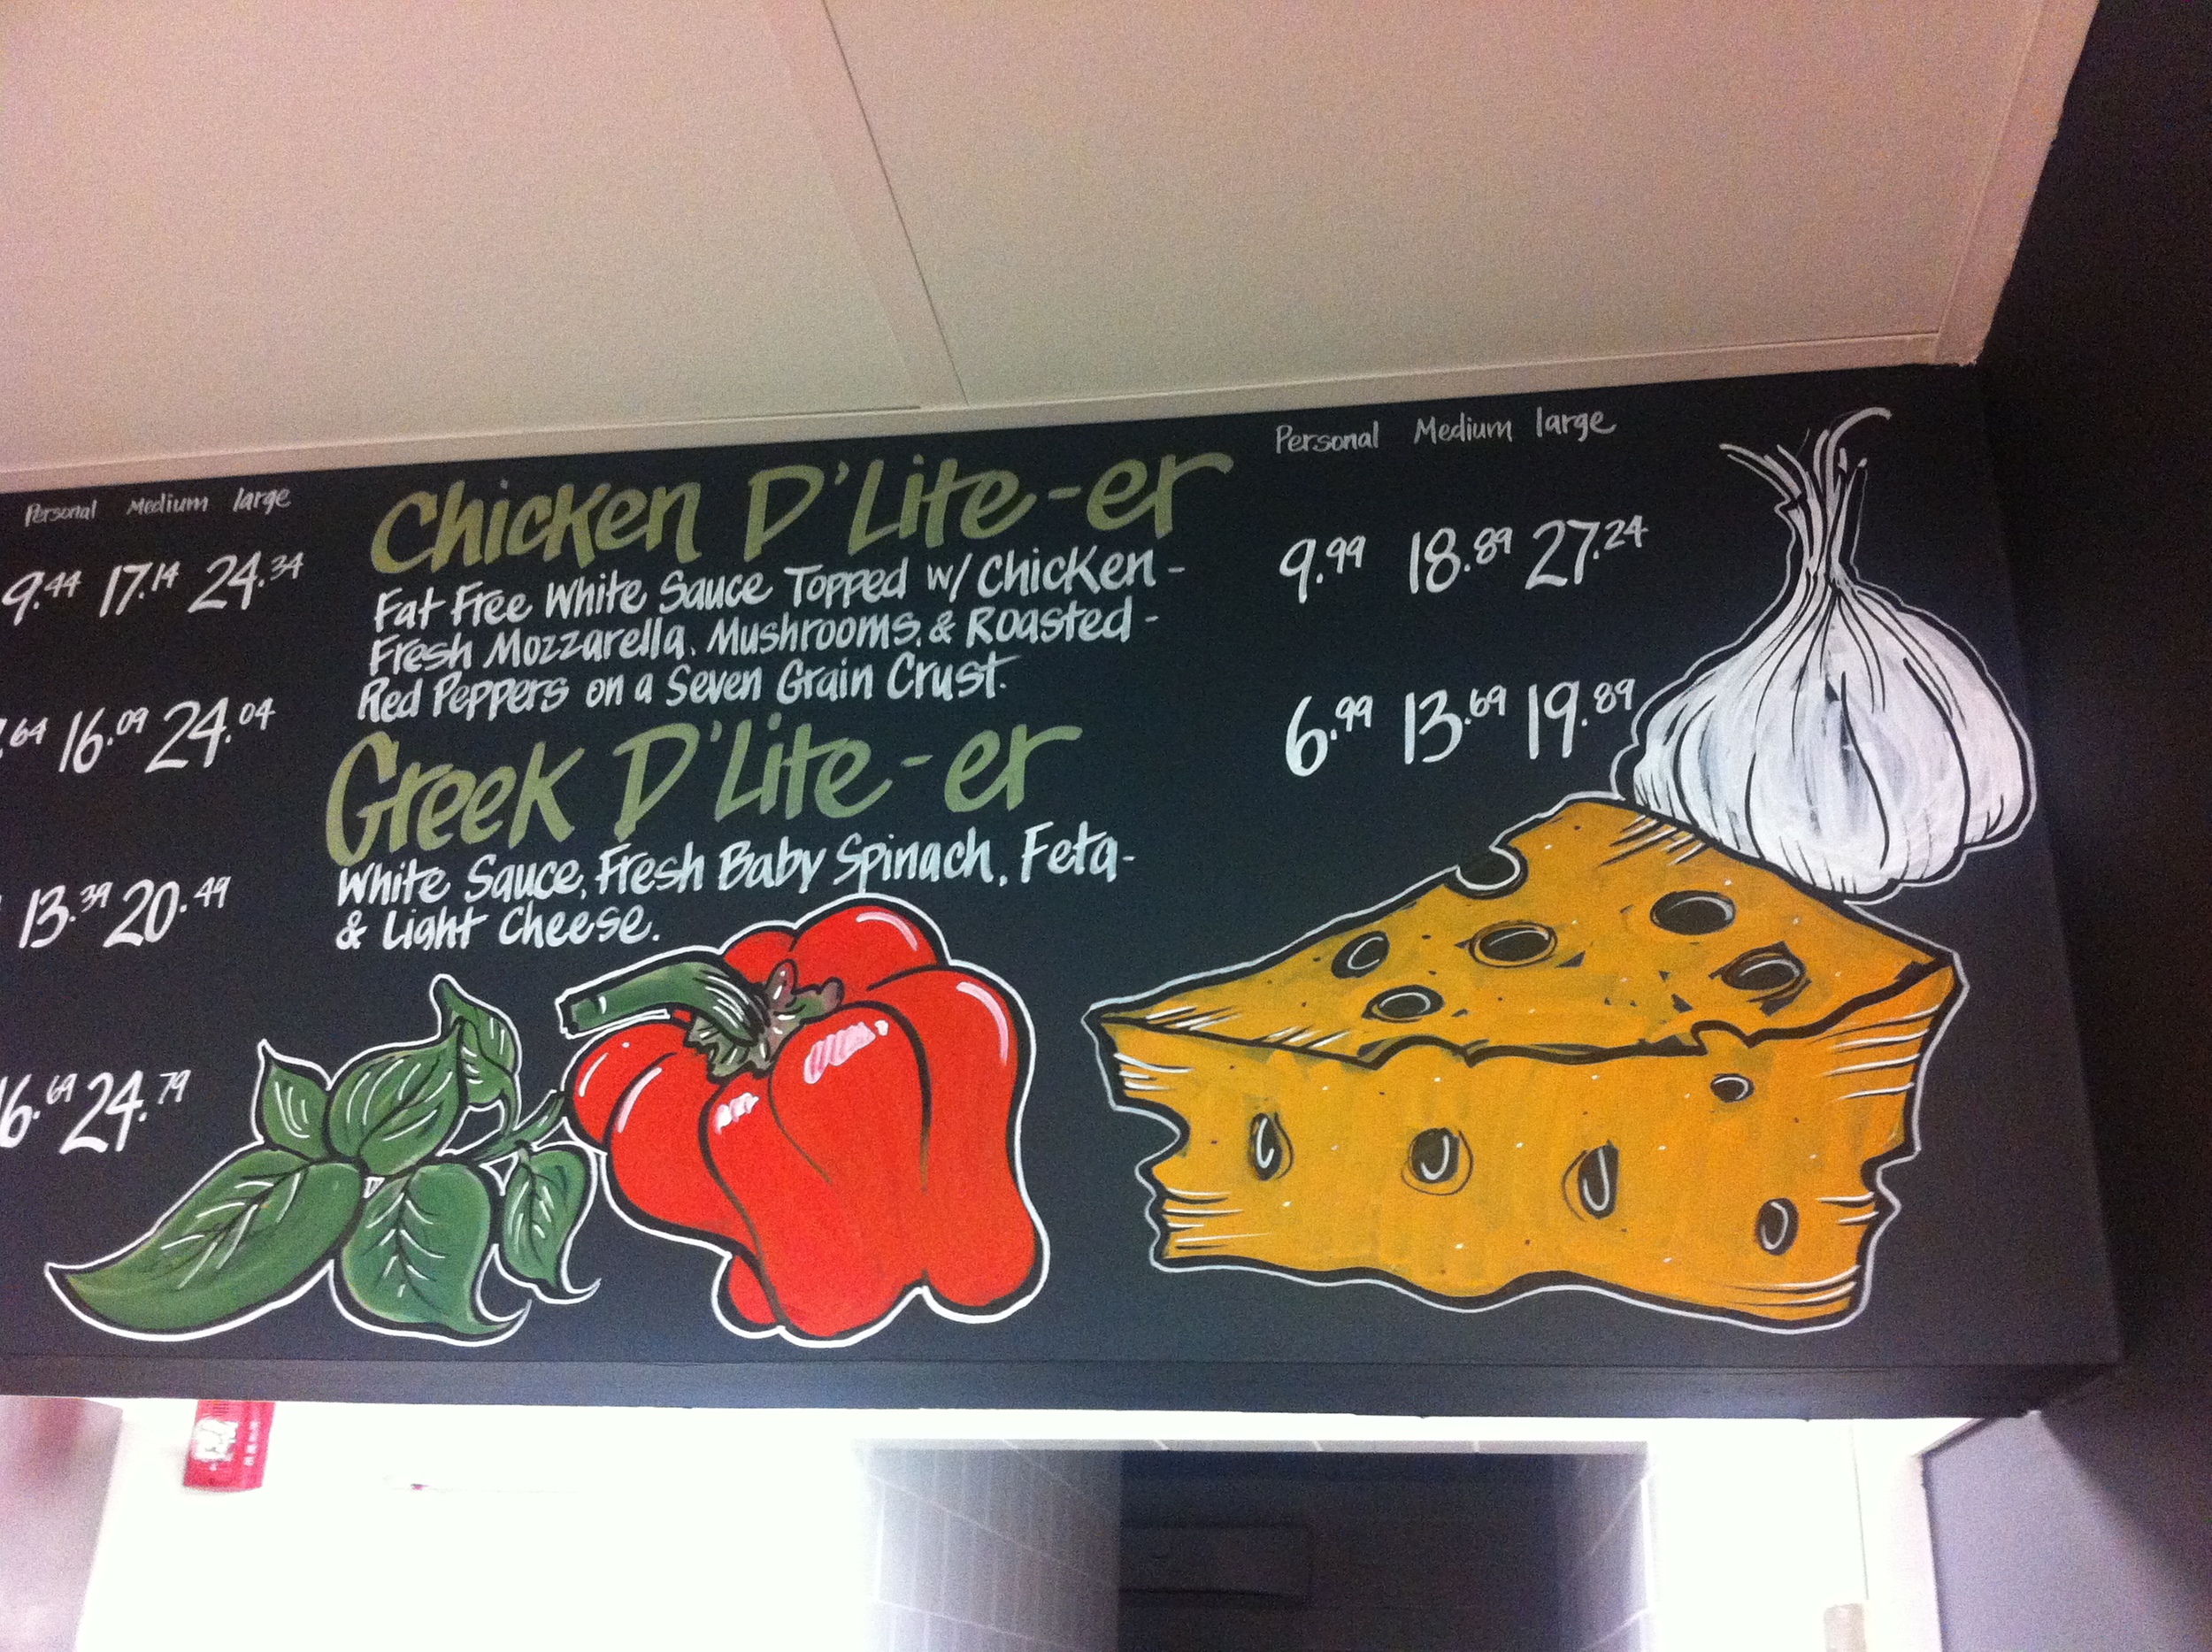 Personal Medium large
9.44 17.14 24.34
.64 16.09 24.04
13.39 20.49
6.69 24.79
Chicken D'Lite-er
Fat Free White Sauce Topped w/ Chicken -
Fresh Mozzarella, Mushrooms, & Roasted -
Red Peppers on a Seven Grain Crust.
Greek D'Lite-er
White Sauce, Fresh Baby Spinach, Feta-
& Light Cheese.
Personal Medium large
9.99 18.89 27.24
6.99 13.69 19.89